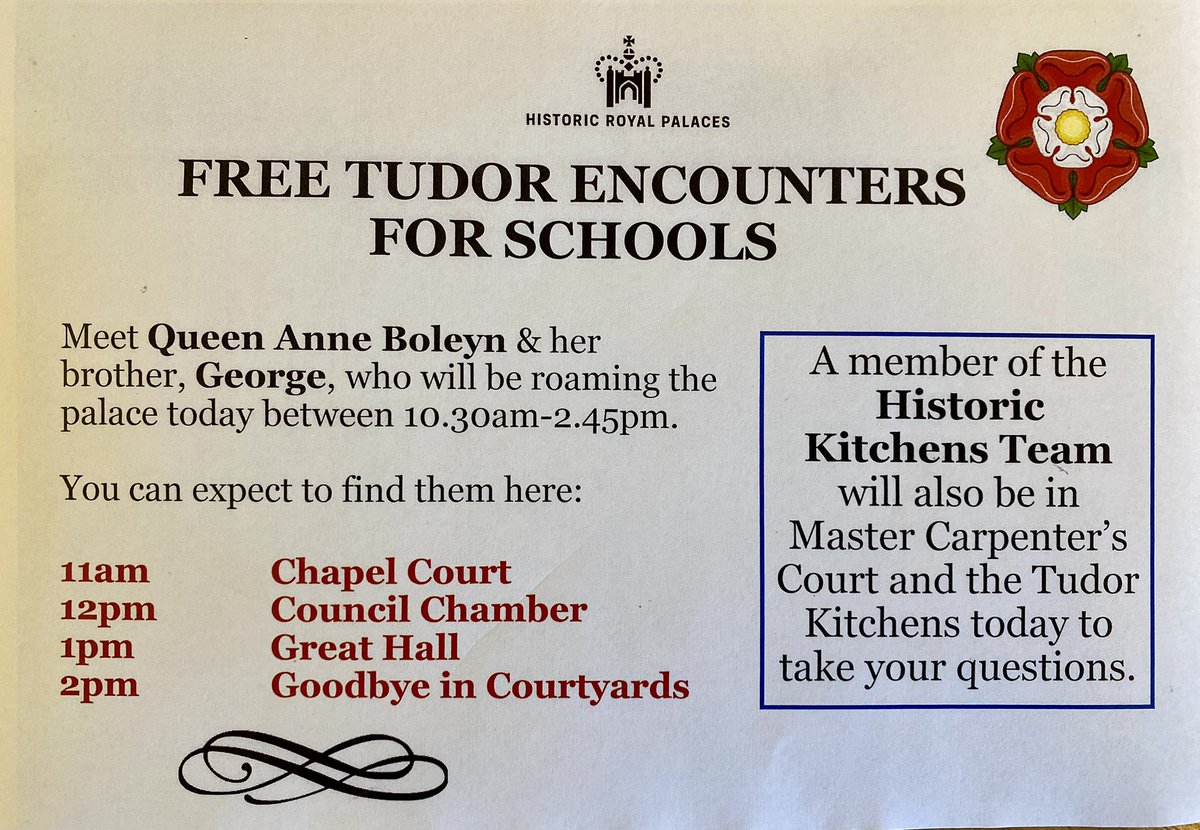 HISTORIC ROYAL PALACES
FREE TUDOR ENCOUNTERS
FOR SCHOOLS
Meet Queen Anne Boleyn & her
brother, George, who will be roaming the
palace today between 10.30am-2.45pm.
You can expect to find them here:
11am Chapel Court
12pm Council Chamber
1pm Great Hall
2pm Goodbye in Courtyards
A member of the
Historic
Kitchens Team
will also be in
Master Carpenter's
Court and the Tudor
Kitchens today to
take your questions.